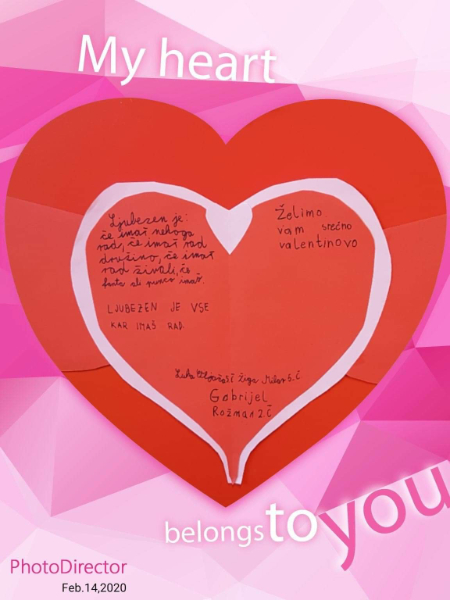 My heart
Ljubezen je:
če imaš nekoga
rad, če imaš rad
družino, če imaš
rad živali, če
fanta ali punco imaš.
LJUBEZEN JE VSE
KAR IMAŠ RAD
Želimo
vam srečno
valentinovo
Luka Žiga 5.č
Gabrijel
Rožman 2Č
belongs to you
PhotoDirector
Feb.14,2020